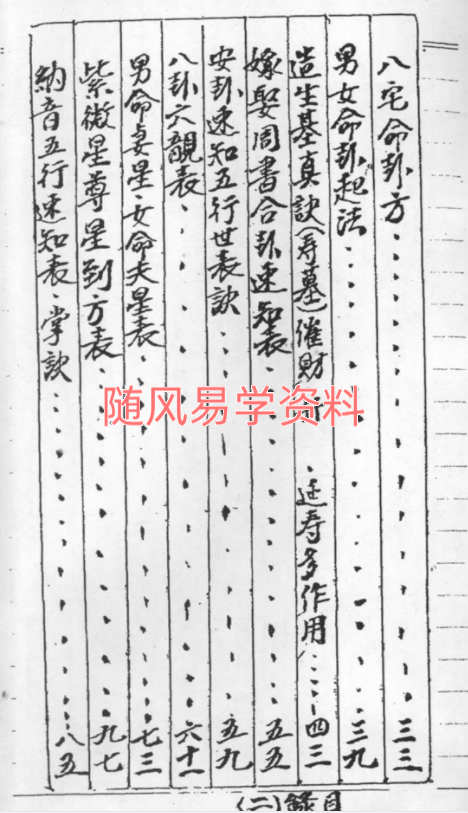 八宅命卦方三三
男女命卦起法三九
造生基真訣(寿墓)催財 延寿多作用四三
嫁娶周書合卦速知表五五
安卦速知五行世表訣五九
八卦六親表六十一
男命妻星、女命夫星表七三
紫微星尊星到方表九七
納音五行速知表、掌訣八五
(二)錄目
随风易学资料